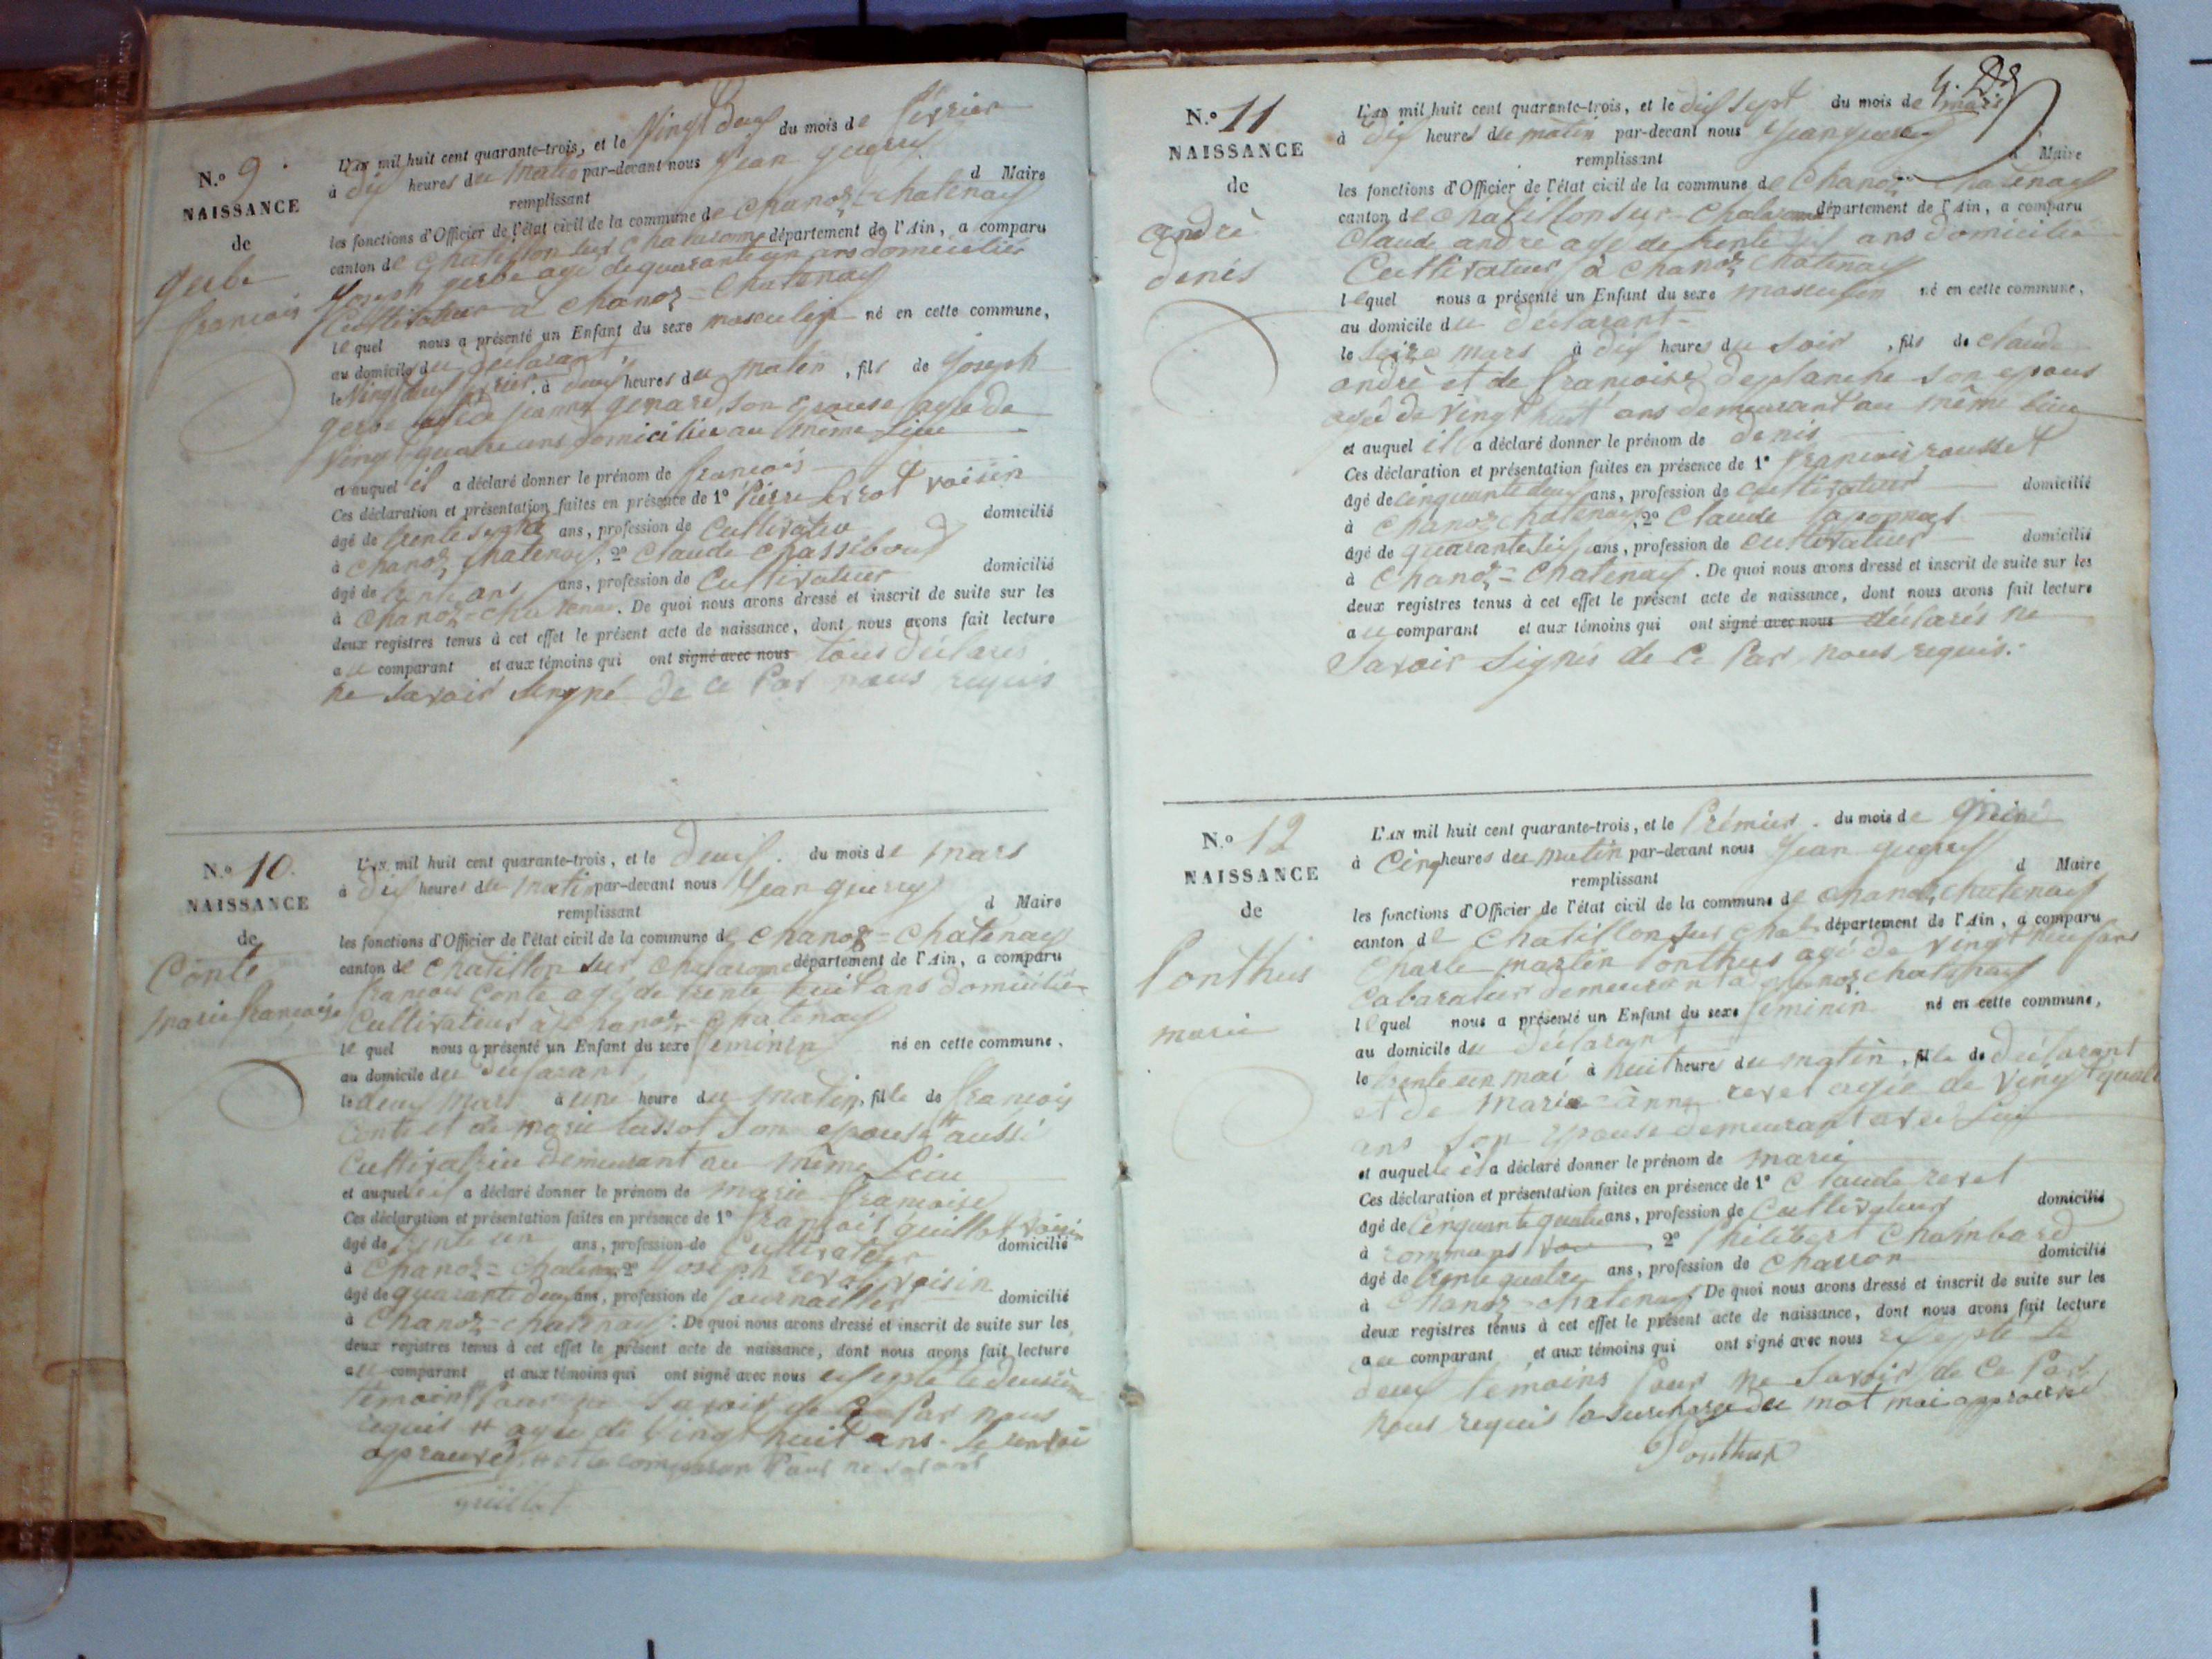 N.º 9
NAISSANCE
de
gerbe
francois
L'AN mil huit cent quarante-trois, et le Vingt deux du mois de fevrier
à dix heures du matin par-devant nous jean guerry
remplissant d Maire
les fonctions d'Officier de l'état civil de la commune de chanoz=chatenay
canton de chatillon sur chalaronne département de l'Ain, a comparu
Joseph gerbe agé de quarante un ans domicilier
Cultivateur a chanoz=chatenay
lequel nous a présenté un Enfant du sexe masculin né en cette commune,
au domicile du declarant,
le Vingt deux fevrier, à deux heures du matin, fils de joseph
gerbe jeanne genard, son epouse agée de
Vingt quatre ans domiciliée au même Lieu
et auquel il a déclaré donner le prénom de francois
Ces déclaration et présentation faites en présence de 1º Pierre voisin
âgé de trente ans, profession de Cultivateur domicilié
à chanoz chatenay, 2º Claude chassibout
âgé de trente ans ans, profession de Cultivateur domicilié
à chanoz=chatenay. De quoi nous avons dressé et inscrit de suite sur les
deux registres tenus à cet effet le présent acte de naissance, dont nous avons fait lecture
au comparant et aux témoins qui ont signé avec nous tous déclarés
ne Savoir Singné de ce Par nous requis
N.º 10.
NAISSANCE
de
Conte
marie françoise
L'AN mil huit cent quarante-trois, et le deux du mois de mars
à dix heures du matin par-devant nous jean guerry
remplissant d Maire
les fonctions d'Officier de l'état civil de la commune de chanoz=chatenay
canton de chatillon sur chalaronne département de l'Ain, a comparu
francois Conte agé de trente huit ans domicilié
Cultivateur à chanoz=chatenay
lequel nous a présenté un Enfant du sexe feminin né en cette commune,
au domicile du declarant,
le deux mars à une heure du matin, fille de francois
Conte et de marie tassot Son epouse # aussi
Cultivatrice demeurant au même Lieu
et auquel il a déclaré donner le prénom de marie francoise
Ces déclaration et présentation faites en présence de 1º francois guillot voisin
âgé de trente un ans, profession de Cultivateur domicilié
à chanoz=chatenay 2º Joseph revol voisin
âgé de quarante deux ans, profession de journallier domicilié
à chanoz=chatenay. De quoi nous avons dressé et inscrit de suite sur les
deux registres tenus à cet effet le présent acte de naissance, dont nous avons fait lecture
au comparant et aux témoins qui ont signé avec nous exsepté le deusième
témoint Pour ne Savoir de Ce Par nous
requis # agée de Vingt huit ans. Le renvoi
approuvé # et le comparan Pour ne savoir
guillot
N.º 11
NAISSANCE
de
andrè
denis
L'AN mil huit cent quarante-trois, et le dix Sept du mois de mars
à dix heures du matin par-devant nous jean guerry
remplissant d Maire
les fonctions d'Officier de l'état civil de la commune de chanoz chatenay
canton de chatillon sur=chalaronne département de l'Ain, a comparu
Claude andré agé de trente six ans domicilié
Cultivateur à chanoz chatenay
lequel nous a présenté un Enfant du sexe masculin né en cette commune,
au domicile du declarant=
le Seize mars à dix heures du Soir, fils de claude
andrè et de françoise deplanche son epous
agée de Vingt huit ans demeurant au même Lieu
et auquel il a déclaré donner le prénom de denis
Ces déclaration et présentation faites en présence de 1º françois rousset
âgé de cinquante deux ans, profession de cultivateur domicilié
à chanoz chatenay, 2º Claude
âgé de quarante six ans, profession de cultivateur domicilié
à chanoz=chatenay. De quoi nous avons dressé et inscrit de suite sur les
deux registres tenus à cet effet le présent acte de naissance, dont nous avons fait lecture
au comparant et aux témoins qui ont signé avec nous déclarés ne
Savoir Signés de Ce Par nous requis.
N.º 12
NAISSANCE
de
Ponthus
marie
L'AN mil huit cent quarante-trois, et le Prémier. du mois de
à Cinq heures du matin par-devant nous jean guerry
remplissant d Maire
les fonctions d'Officier de l'état civil de la commune de chanoz chatenay
canton de chatillon sur chal département de l'Ain, a comparu
Charle martin Ponthus agé de vingt neuf ans
Cabaratier demeurant a chanoz chatenay
lequel nous a présenté un Enfant du sexe feminin né en cette commune,
au domicile du declarant
le trente un mai à huit heures du matin, fille de déclarant
et de marie=anne revel agée de Vingt quatre
ans Son epouse demeurant avec Lui
et auquelle il a déclaré donner le prénom de marie
Ces déclaration et présentation faites en présence de 1º Claude revel
âgé de Cinquante quatre ans, profession de Cultivateur domicilié
à rommans 2º Philibert Chambard
âgé de trente quatre ans, profession de charron domicilié
à chanoz=chatenay. De quoi nous avons dressé et inscrit de suite sur les
deux registres tenus à cet effet le présent acte de naissance, dont nous avons fait lecture
au comparant et aux témoins qui ont signé avec nous exsepté le
deux témoins Pour ne Savoir de Ce Par
nous requis la Surcharge du mot mai approuvé
Ponthus